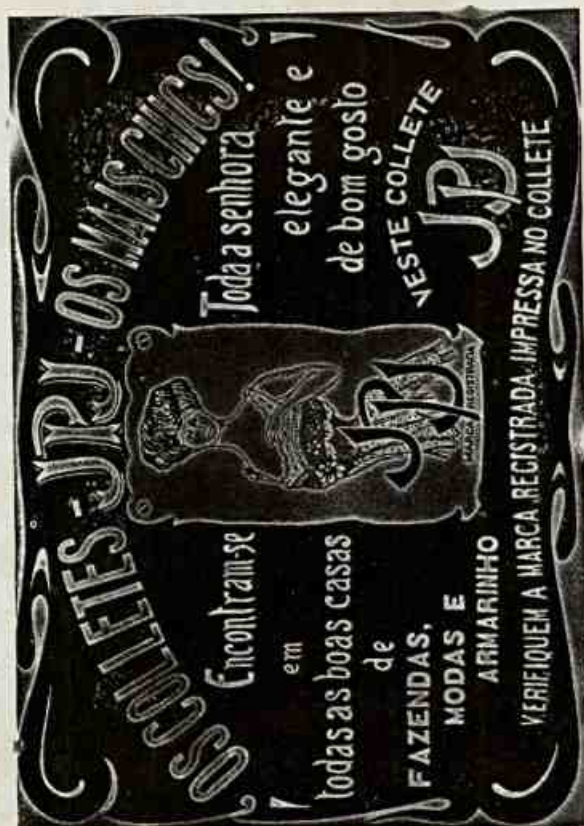 OS COLLETES - JPJ - OS MAIS CHICS!
Encontram-se
em
todas as boas casas
de
FAZENDAS,
MODAS E
ARMARINHO
JPJ
MARCA REGISTRADA
Toda a senhora
elegante e
de bom gosto
VESTE COLLETE
JPJ
VERIFIQUEM A MARCA REGISTRADA IMPRESSA NO COLLETE